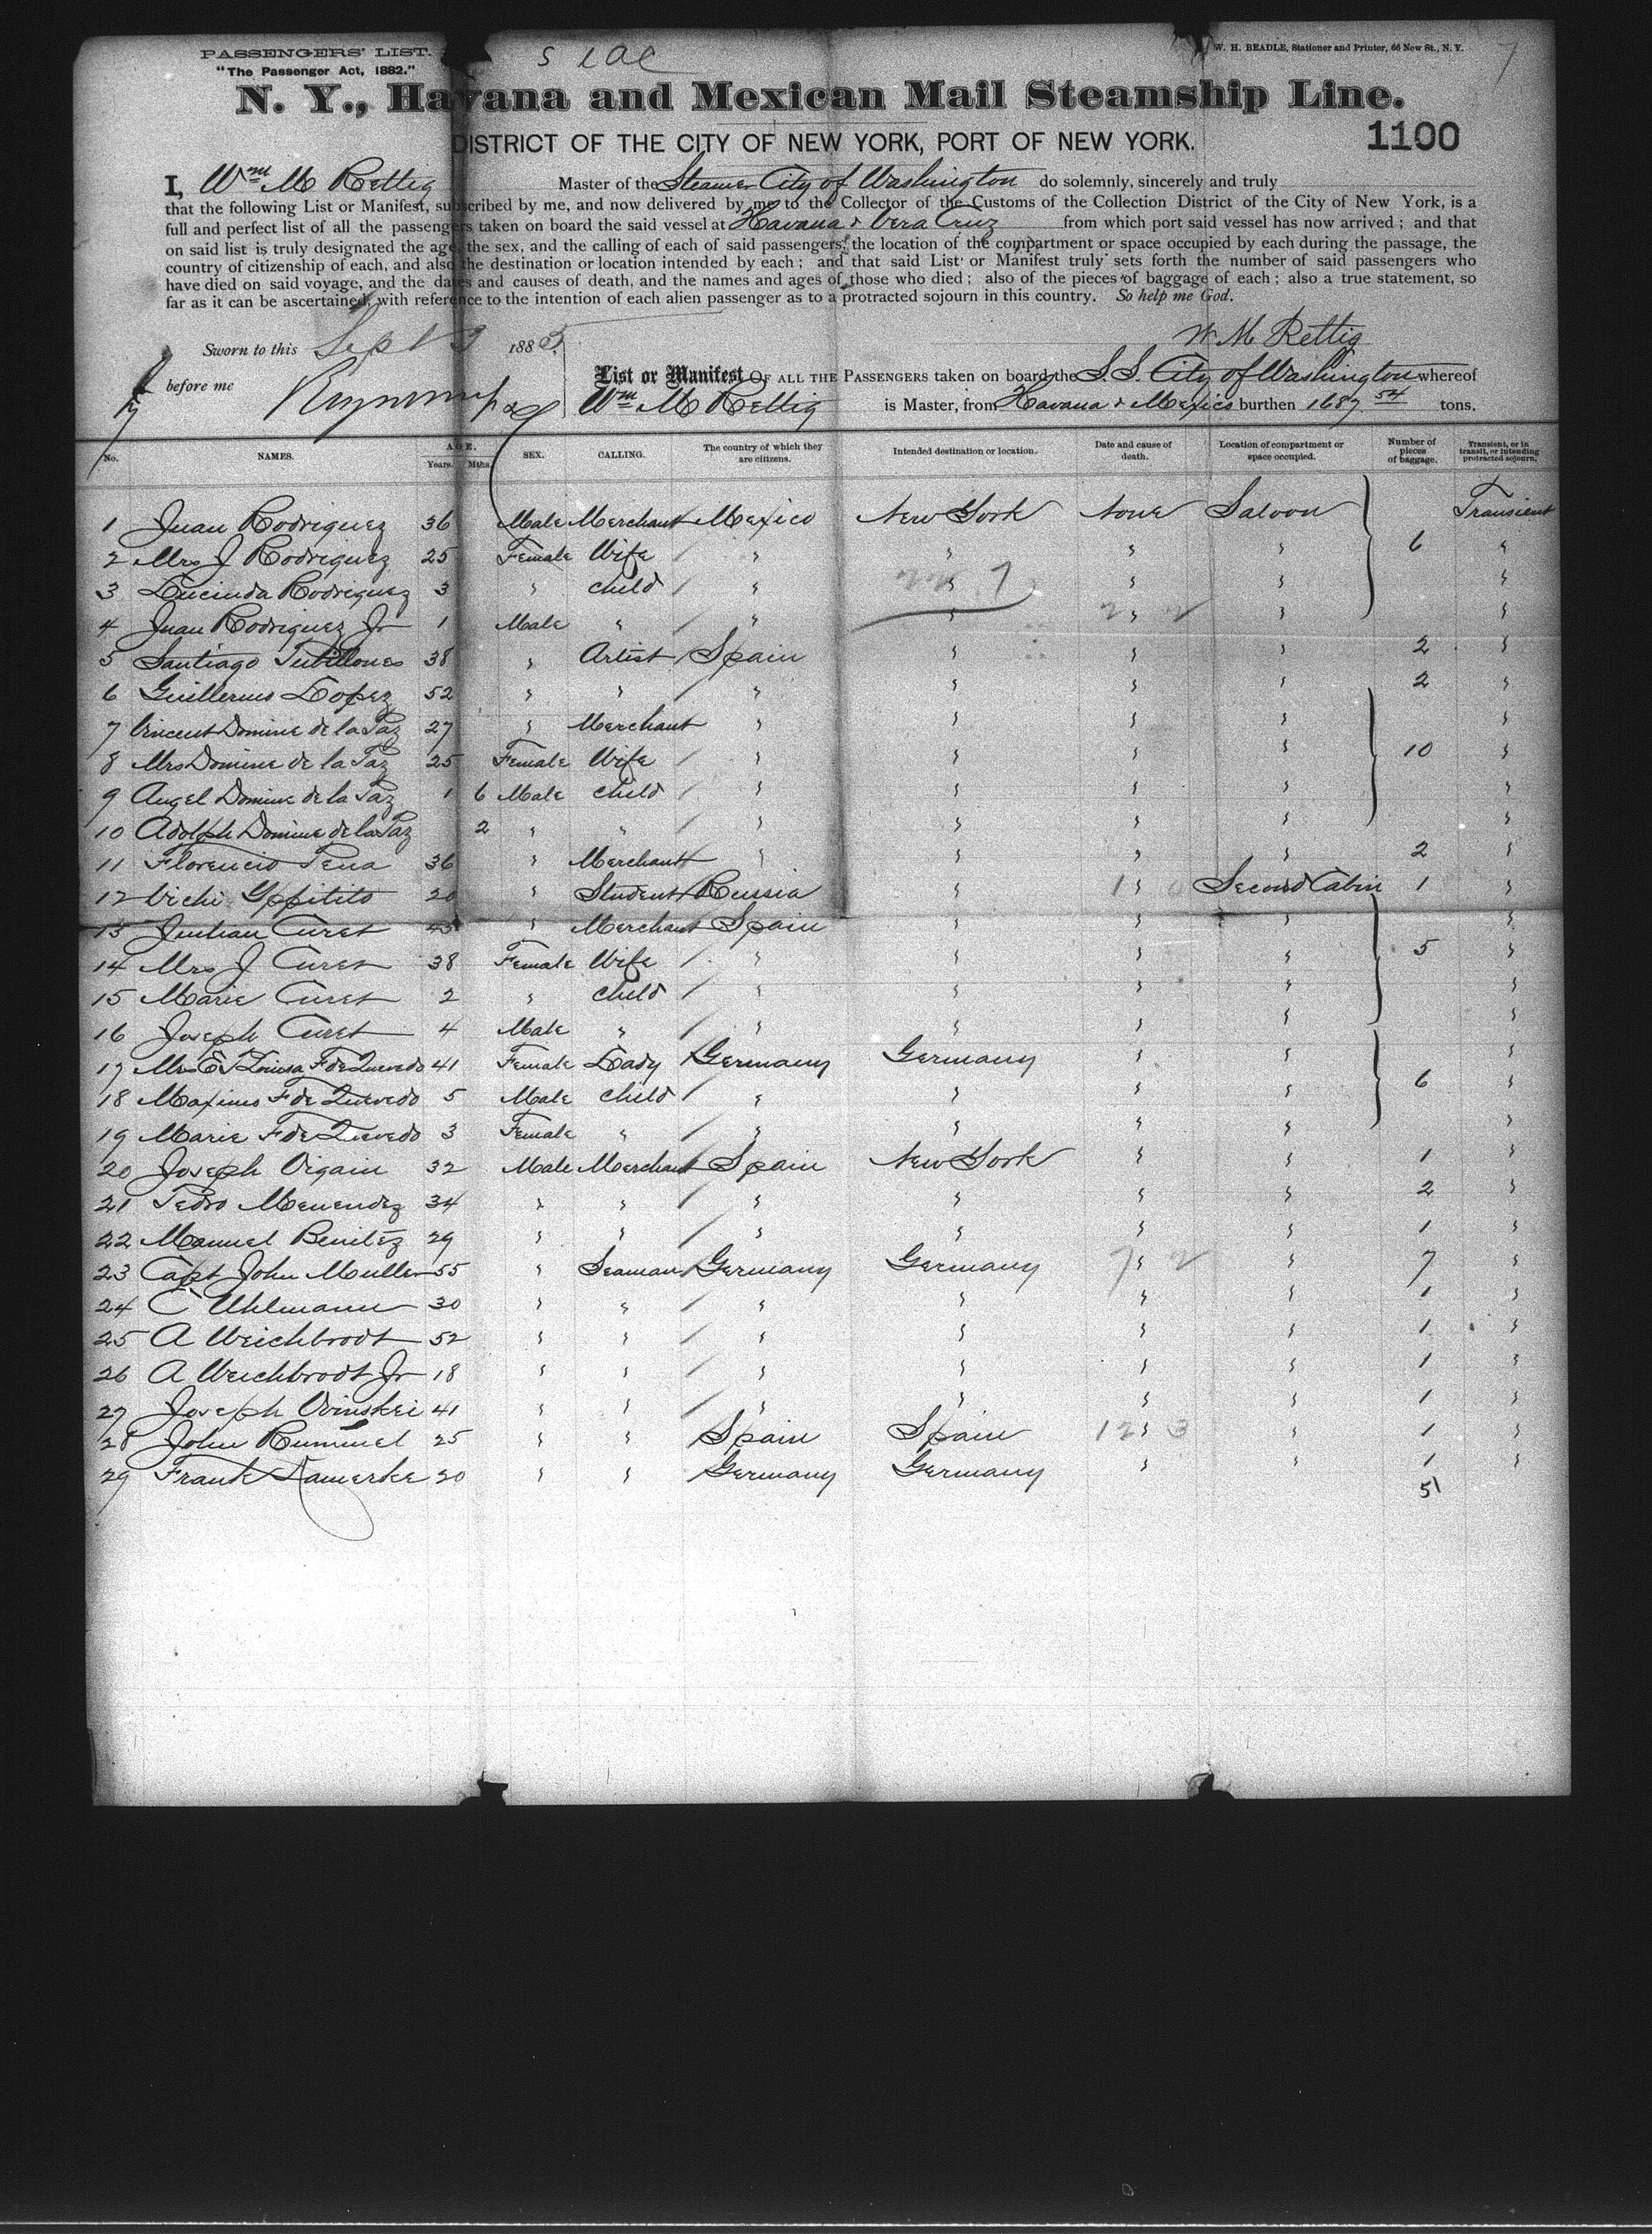 PASSENGERS' LIST.
W. H. BEADLE, Stationer and Printer, 66 New St., N. Y.
"The Passenger Act, 1882."
N. Y., Havana and Mexican Mail Steamship Line.
DISTRICT OF THE CITY OF NEW YORK, PORT OF NEW YORK. 1100
I, Wm M Rettig Master of the Steamer City of Washington do solemnly, sincerely and truly
that the following List or Manifest, subscribed by me, and now delivered by me to the Collector of the Customs of the Collection District of the City of New York, is a
full and perfect list of all the passengers taken on board the said vessel at Havana & Vera Cruz from which port said vessel has now arrived; and that
on said list is truly designated the age, the sex, and the calling of each of said passengers, the location of the compartment or space occupied by each during the passage, the
country of citizenship of each, and also the destination or location intended by each; and that said List or Manifest truly sets forth the number of said passengers who
have died on said voyage, and the dates and causes of death, and the names and ages of those who died; also of the pieces of baggage of each; also a true statement, so
far as it can be ascertained, with reference to the intention of each alien passenger as to a protracted sojourn in this country. So help me God.
W M Rettig
Sworn to this Sept 3 1885
before me
List or Manifest OF ALL THE PASSENGERS taken on board the S.S. City of Washington whereof
Wm M Rettig is Master, from Havana & Mexico burthen 1687 54 tons.
No. NAMES. AGE. Years. Mths. SEX. CALLING. The country of which they are citizens. Intended destination or location. Date and cause of death. Location of compartment or space occupied. Number of pieces of baggage. Transient, or in transit, or intending protracted sojourn.
1 Juan Rodriguez 36 Male Merchant Mexico New York None Saloon Transient
2 Mrs J Rodriguez 25 Female Wife " " " " 6 "
3 Lucinda Rodriguez 3 " Child " " " " "
4 Juan Rodriguez Jr 1 Male " " " " " "
5 Santiago 38 " Artist Spain " " " 2 "
6 Guillermo Lopez 52 " " " " " " 2 "
7 Vincent Domine de la Paz 27 " Merchant " " " " "
8 Mrs Domine de la Paz 25 Female Wife " " " " 10 "
9 Angel Domine de la Paz 1 6 Male Child " " " " "
10 Adolph Domine de la Paz 2 " " " " " " "
11 Florencio Pena 36 " Merchant " " " " 2 "
12 20 " Student Russia " " Second Cabin 1 "
13 Julian Curet 45 " Merchant Spain " " " "
14 Mrs J Curet 38 Female Wife " " " " 5 "
15 Marie Curet 2 " Child " " " " "
16 Joseph Curet 4 Male " " " " " "
17 Mrs E Louisa F de Quevedo 41 Female Lady Germany Germany " " "
18 Maximo F de Quevedo 5 Male Child " " " " 6 "
19 Marie F de Quevedo 3 Female " " " " " "
20 Joseph Vigain 32 Male Merchant Spain New York " " 1 "
21 Pedro Menendez 34 " " " " " " 2 "
22 Manuel Benitez 29 " " " " " " 1 "
23 Capt John Muller 55 " Seaman Germany Germany " " 7 "
24 C Uhlmann 30 " " " " " " 1 "
25 A Weichbrodt 52 " " " " " " 1 "
26 A Weichbrodt Jr 18 " " " " " " 1 "
27 Joseph Ovinskei 41 " " " " " " 1 "
28 John Rummel 25 " " Spain Spain " " 1 "
29 Frank Lamerke 20 " " Germany Germany " " 1 "
51